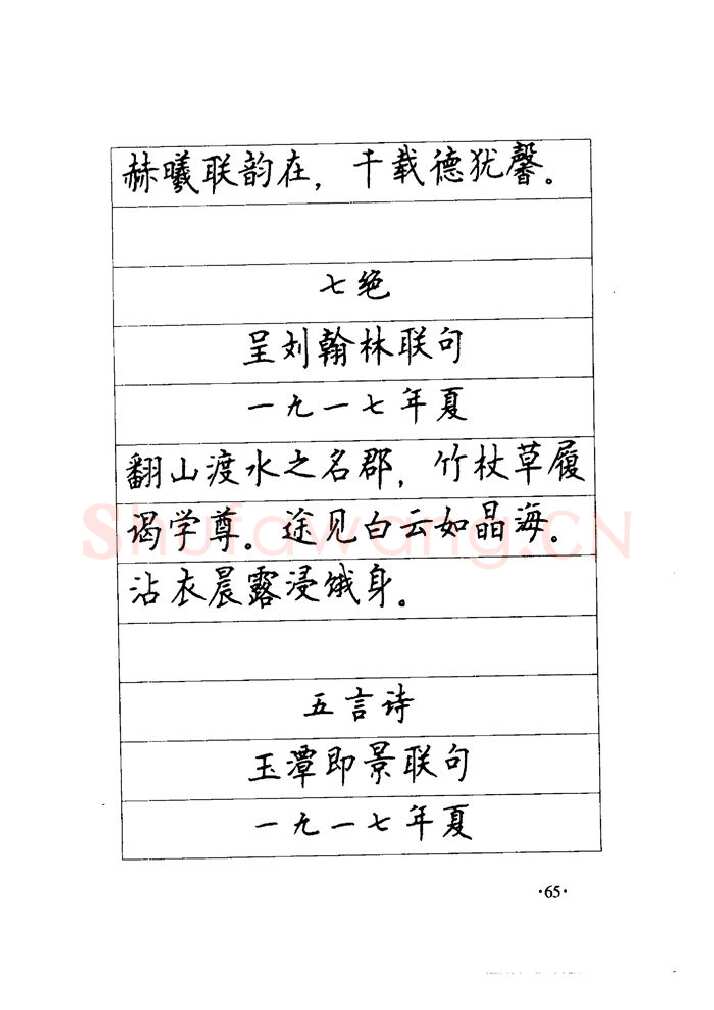 赫曦联韵在，千载德犹馨。
七绝
呈刘翰林联句
一九一七年夏
翻山渡水之名郡，竹杖草履
谒学尊。途见白云如晶海。
沾衣晨露浸饿身。
五言诗
玉潭即景联句
一九一七年夏
·65·
Shufawang.CN